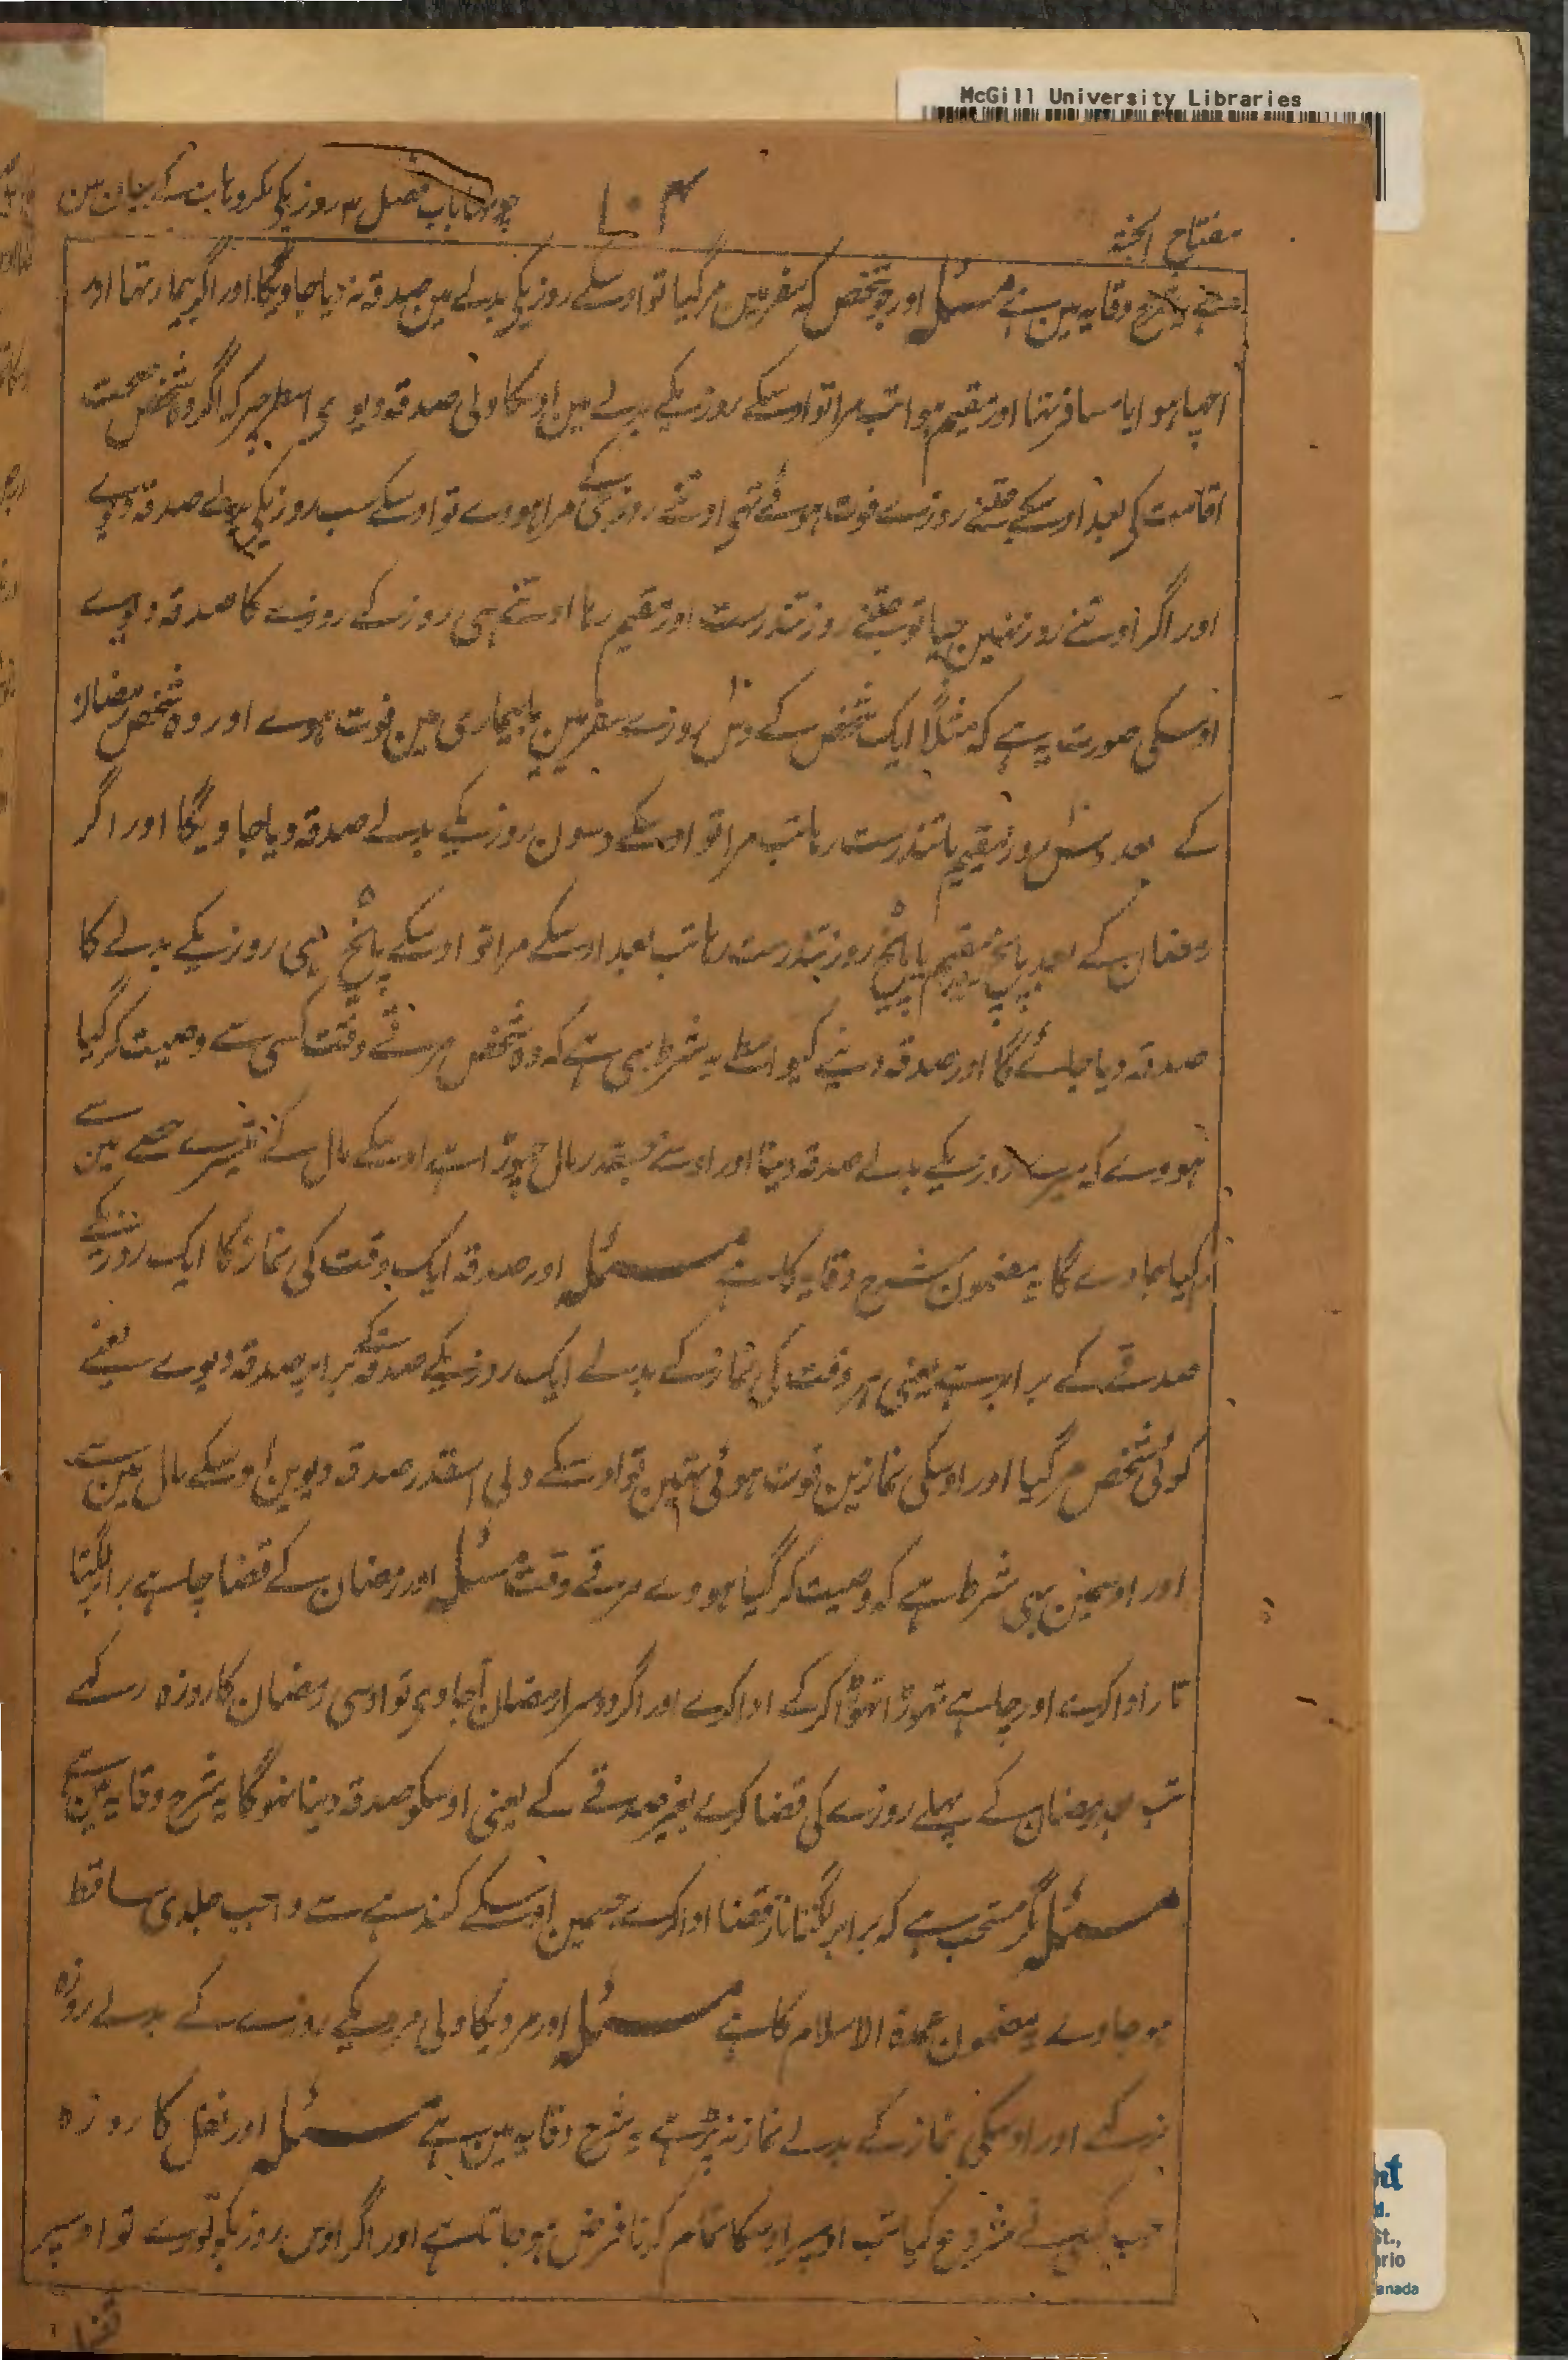 McGill University Libraries
مفتاح الجنۃ
۱۰۴
چوتھا باب فصل ۳ روزیکی مکروہات کے بیان مین
شرح وقایہ مین ہے مسئلہ اور جو شخص کہ سفر مین مرگیا تو اوسکے روزیکے بدلے مین صدقہ نہ دیا جاویگا اور اگر بیمار تھا اور
اچھا ہوا یا مسافر تھا اور مقیم ہوا تب مرا تو اوسکے روزیکے بدلے مین اوسکا ولی صدقہ دیوی اسطرحپر کہ اگر وہ شخص صحت
اقامت کی بعد اوسکے جتنے روزے فوت ہوئے تھی اوتنے روز کے مرا ہووے تو اوسکے سب روزیکی بدلے صدقہ دیوے
اور اگر اوتنے روز نہین جیا تو جتنے روز تندرست اور مقیم رہا اوتنے ہی روزکے روزے کا صدقہ دیوے
اوسکی صورت یہ ہے کہ مثلاً ایک شخص کے دس روزے سفر مین یا بیماری مین فوت ہوے اور وہ شخص رمضان
کے بعد دس روز مقیم یا تندرست رہا تب مرا تو اوسکے دسون روزیکے بدلے صدقہ دیا جاویگا اور اگر
رمضان کے بعد پانچ روز مقیم یا پانچ روز تندرست رہا تب بعد اوسکے مرا تو اوسکے پانچ ہی روزیکے بدلے کا
صدقہ دیا جائے گا اور صدقہ دینے کیواسطے یہ شرط بھی ہے کہ وہ شخص مرتے وقت کسی سے وصیت کر گیا
ہووے کہ میرے روزیکے بدلے صدقہ دینا اور اوسنے جسقدر مال چھوڑا ہے اوسکے مال کے تیسرے حصے مین سے
کیا جاوے گا یہ مضمون شرح وقایہ کا ہے مسئلہ اور صدقہ ایک وقت کی نماز کا ایک روزیکے
صدقے کے برابر ہے یعنی ہر وقت کی نماز کے بدلے ایک روزیکے صدقہ کے برابر صدقہ دیوے یعنے
کوئی شخص مرگیا اور اوسکی نمازین فوت ہوئی تھین تو اوسکے ولی اسقدر صدقہ دیوین اوسکے مال مین سے
اور اوسمین بھی شرط ہے کہ وصیت کر گیا ہووے مرتے وقت مسئلہ اور رمضان کے قضا چاہے برابر لگتا
تار ادا کرے اور چاہے تھوڑا تھوڑا کرکے ادا کرے اور اگر دوسرا رمضان آجاوی تو اوسی رمضان کا روزہ رکھے
تب بعد رمضان کے پہلے روزے کی قضا کرے بغیر صدقے کے یعنی اوسکو صدقہ دینا نہوگا یہ شرح وقایہ مین ہے
مسئلہ مگر مستحب ہے کہ برابر لگتا تار قضا ادا کرے جسمین اوسکے کندہے سے واجب جلدی ساقط
ہو جاوے یہ مضمون عمدة الاسلام کا ہے مسئلہ اور مردیکا ولی مردیکے روزے کے بدلے روزہ
نرکھے اور اوسکی نماز کے بدلے نماز نہ پڑہے یہ شرح وقایہ مین ہے مسئلہ اور نفل کا روزہ
جب کسی نے شروع کیا تب اوسپر اوسکا تمام کرنا فرض ہو جاتا ہے اور اگر اوس روزیکو توڑے تو اوسپر
قضا
nt
d.
St.,
ario
anada